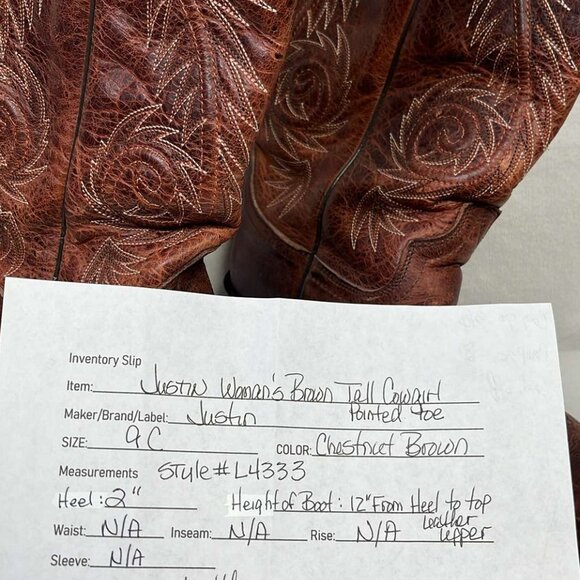 Inventory Slip
Item: Justin Woman's Brown Tall Cowgirl
Pointed toe
Maker/Brand/Label: Justin
SIZE: 9C COLOR: Chestnut Brown
Measurements Style# L4333
Heel: 2" Height of Boot: 12" From Heel to top
Leather upper
Waist: N/A Inseam: N/A Rise: N/A
Sleeve: N/A